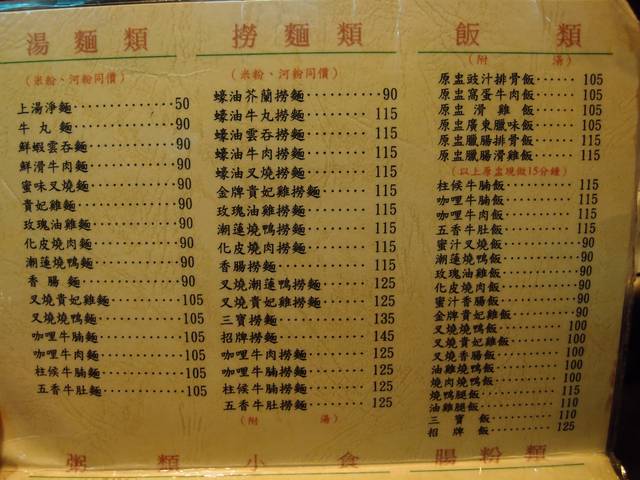 湯麵類
(米粉、河粉同價)
上湯淨麵 50
牛丸麵 90
鮮蝦雲吞麵 90
鮮滑牛肉麵 90
蜜味叉燒麵 90
貴妃雞麵 90
玫瑰油雞麵 90
化皮燒肉麵 90
潮蓮燒鴨麵 90
香腸麵 90
叉燒貴妃雞麵 105
叉燒燒鴨麵 105
咖哩牛腩麵 105
咖哩牛肉麵 105
柱候牛腩麵 105
五香牛肚麵 105
撈麵類
(米粉、河粉同價)
蠔油芥蘭撈麵 90
蠔油牛丸撈麵 115
蠔油雲吞撈麵 115
蠔油牛肉撈麵 115
蠔油叉燒撈麵 115
金牌貴妃雞撈麵 115
玫瑰油雞撈麵 115
潮蓮燒鴨撈麵 115
化皮燒肉撈麵 115
香腸撈麵 115
叉燒潮蓮燒鴨撈麵 125
叉燒貴妃雞撈麵 125
三寶撈麵 135
招牌撈麵 145
咖哩牛肉撈麵 125
咖哩牛腩撈麵 125
柱候牛腩撈麵 125
五香牛肚撈麵 125
(附湯)
飯類
(附湯)
原盅豉汁排骨飯 105
原盅窩蛋牛肉飯 105
原盅滑雞飯 105
原盅廣東臘味飯 105
原盅臘腸排骨飯 115
原盅臘腸滑雞飯 115
(以上原盅現做15分鐘)
柱候牛腩飯 115
咖哩牛腩飯 115
咖哩牛肉飯 115
五香牛肚飯 115
蜜汁叉燒飯 90
潮蓮燒鴨飯 90
玫瑰油雞飯 90
化皮燒肉飯 90
蜜汁香腸飯 90
金牌貴妃雞飯 90
叉燒燒鴨飯 100
叉燒貴妃雞飯 100
叉燒香腸飯 100
油雞燒鴨飯 100
燒肉燒鴨飯 100
燒鴨腿飯 115
油雞腿飯 110
三寶飯 110
招牌飯 125
粥類小食
腸粉類